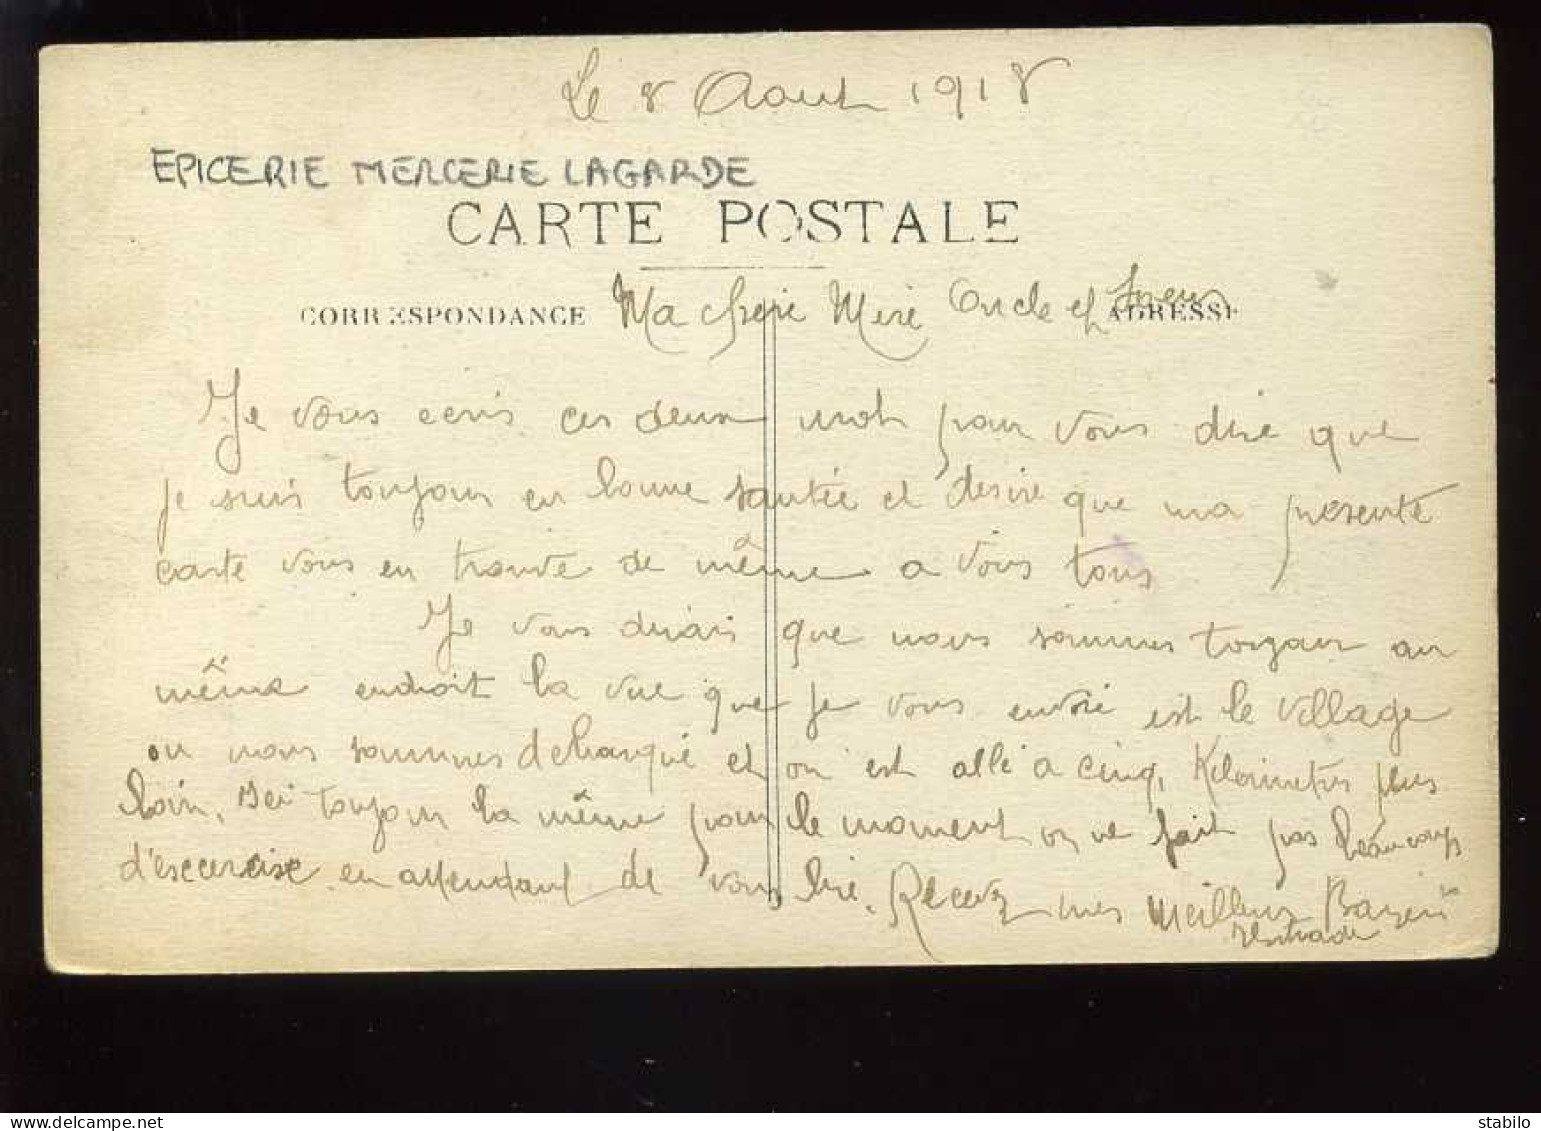 Le 8 Aout 1918
EPICERIE MERCERIE LAGARDE
CARTE POSTALE
CORRESPONDANCE
ADRESSE
Ma chere Mere Oncle et
Je vous ecris ces deux mots pour vous dire que
je suis toujour en bonne santée et desire que ma presente
carte vous en trouve de même a vous tous
Je vous dirais que nous sommes toujour au
même endroit la vue que je vous envoie est le village
ou nous sommes debarqué et on est allé a cinq Kilometres plus
loin. Ici toujour la même pour le moment on ne fait pas beaucoup
d'excercise en attendant de vous lire. Recevez mes Meilleurs
stabilo